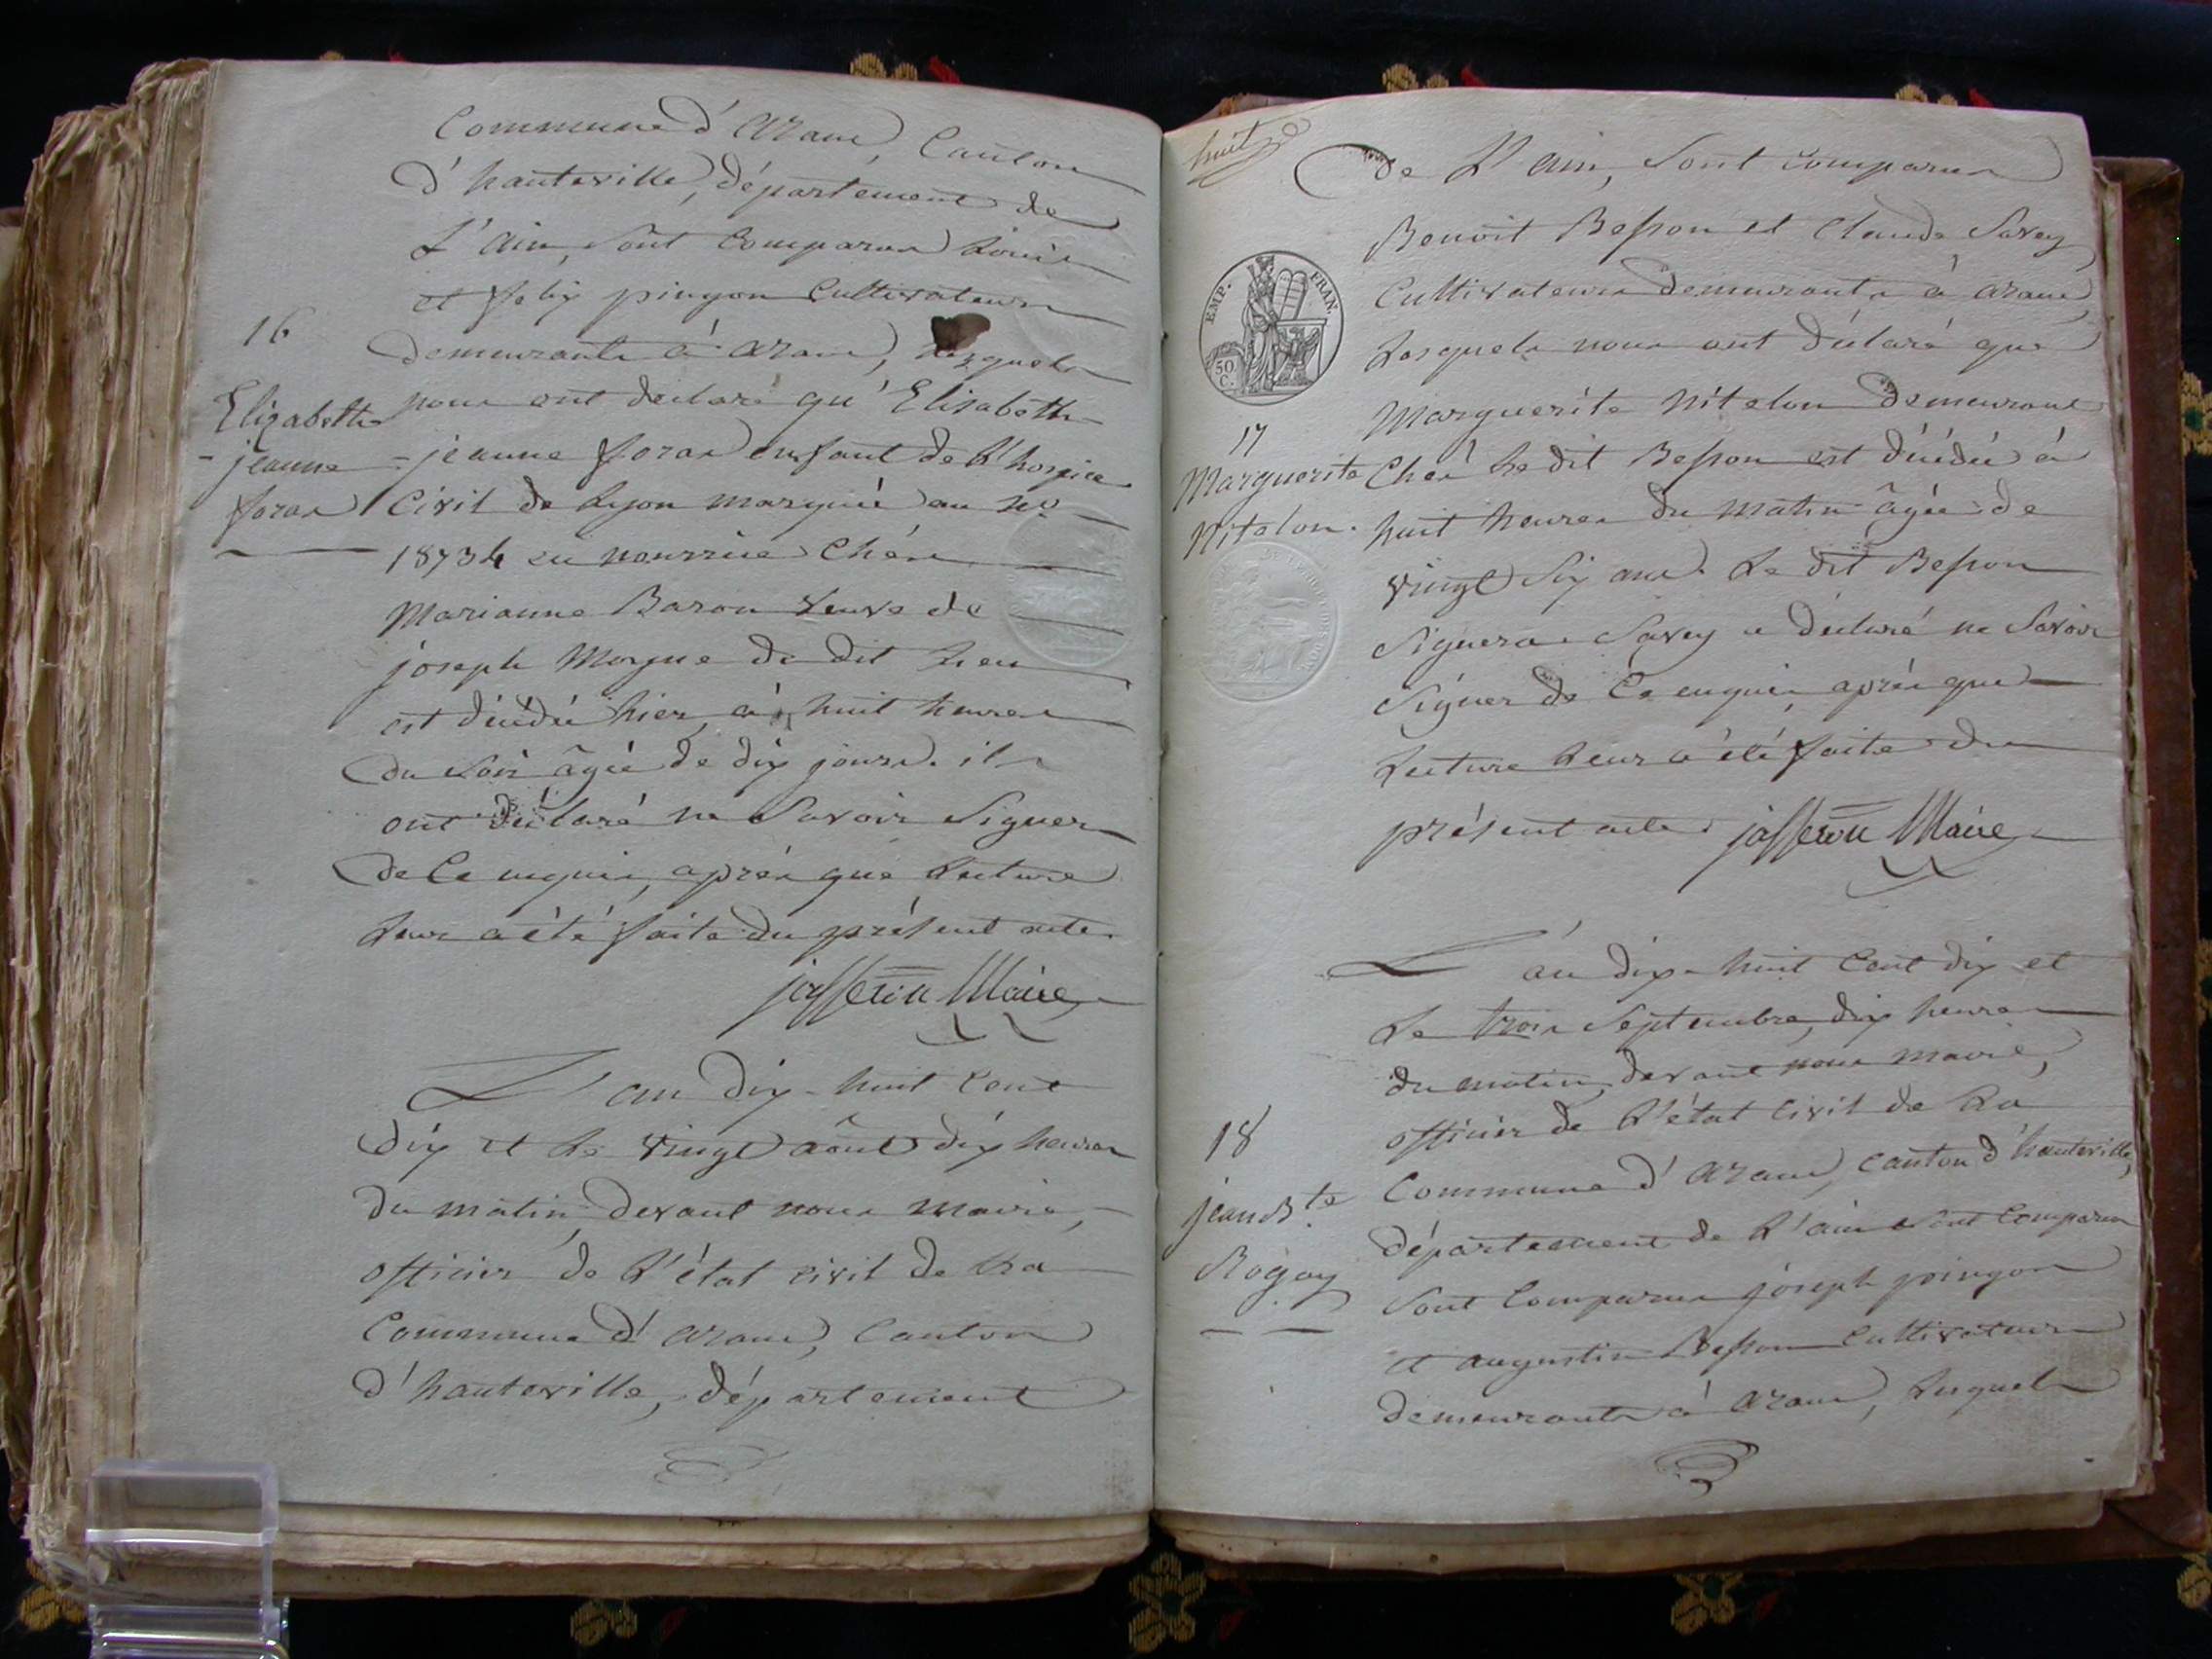 Commune d'arane, Canton
d'hauteville, département de
L'ain, sont Comparus Louis
et felix pingon Cultivateurs
16
demeurants à arane, lesquels
nous ont déclaré qu'Elisabeth
Elizabeth
- jeanne
foras
- jeanne foras enfant de l'hospice
Civil de Lyon marquée au no
18734 en nourrice Chés
Marianne Baron veuve de
joseph Morgue du dit lieu
est décédée hier, à huit heures
du soir âgée de dix jours. ils
ont déclaré ne Savoir Signer
de Ce enquis, après que Lecture
Leur a été faite du présent acte.
jasseron Maire
L'an dix-huit Cent
dix et Le vingt août dix heures
du matin, devant nous maire,
officier de L'état civil de La
Commune d'arane, Canton
d'hauteville, département
huit
De L'ain, Sont comparus
Benoit Besson et Claude Savey
EMP. FRAN.
50 C.
Cultivateurs demeurants à arane
Lesquels nous ont déclaré que
Marguerite Nitelon demeurant
17
Marguerite
Nitelon.
Chés Le dit Besson est décédée à
huit heures du matin âgée de
vingt Six ans. Le dit Besson
Signera. Savey a déclaré ne Savoir
Signer de Ce enquis, après que
Lecture Leur a été faite du
présent acte. jasseron Maire
L'an dix-huit Cent dix et
Le trois Septembre, dix heures
du matin, devant nous maire,
officier de L'état Civil de La
18
jean Bte
Rogay
Commune d'arane, Canton d'hauteville,
département de L'ain Sont Comparus
Sont Comparus joseph pingon
et augustin Besson Cultivateurs
demeurants à arane, Lesquels